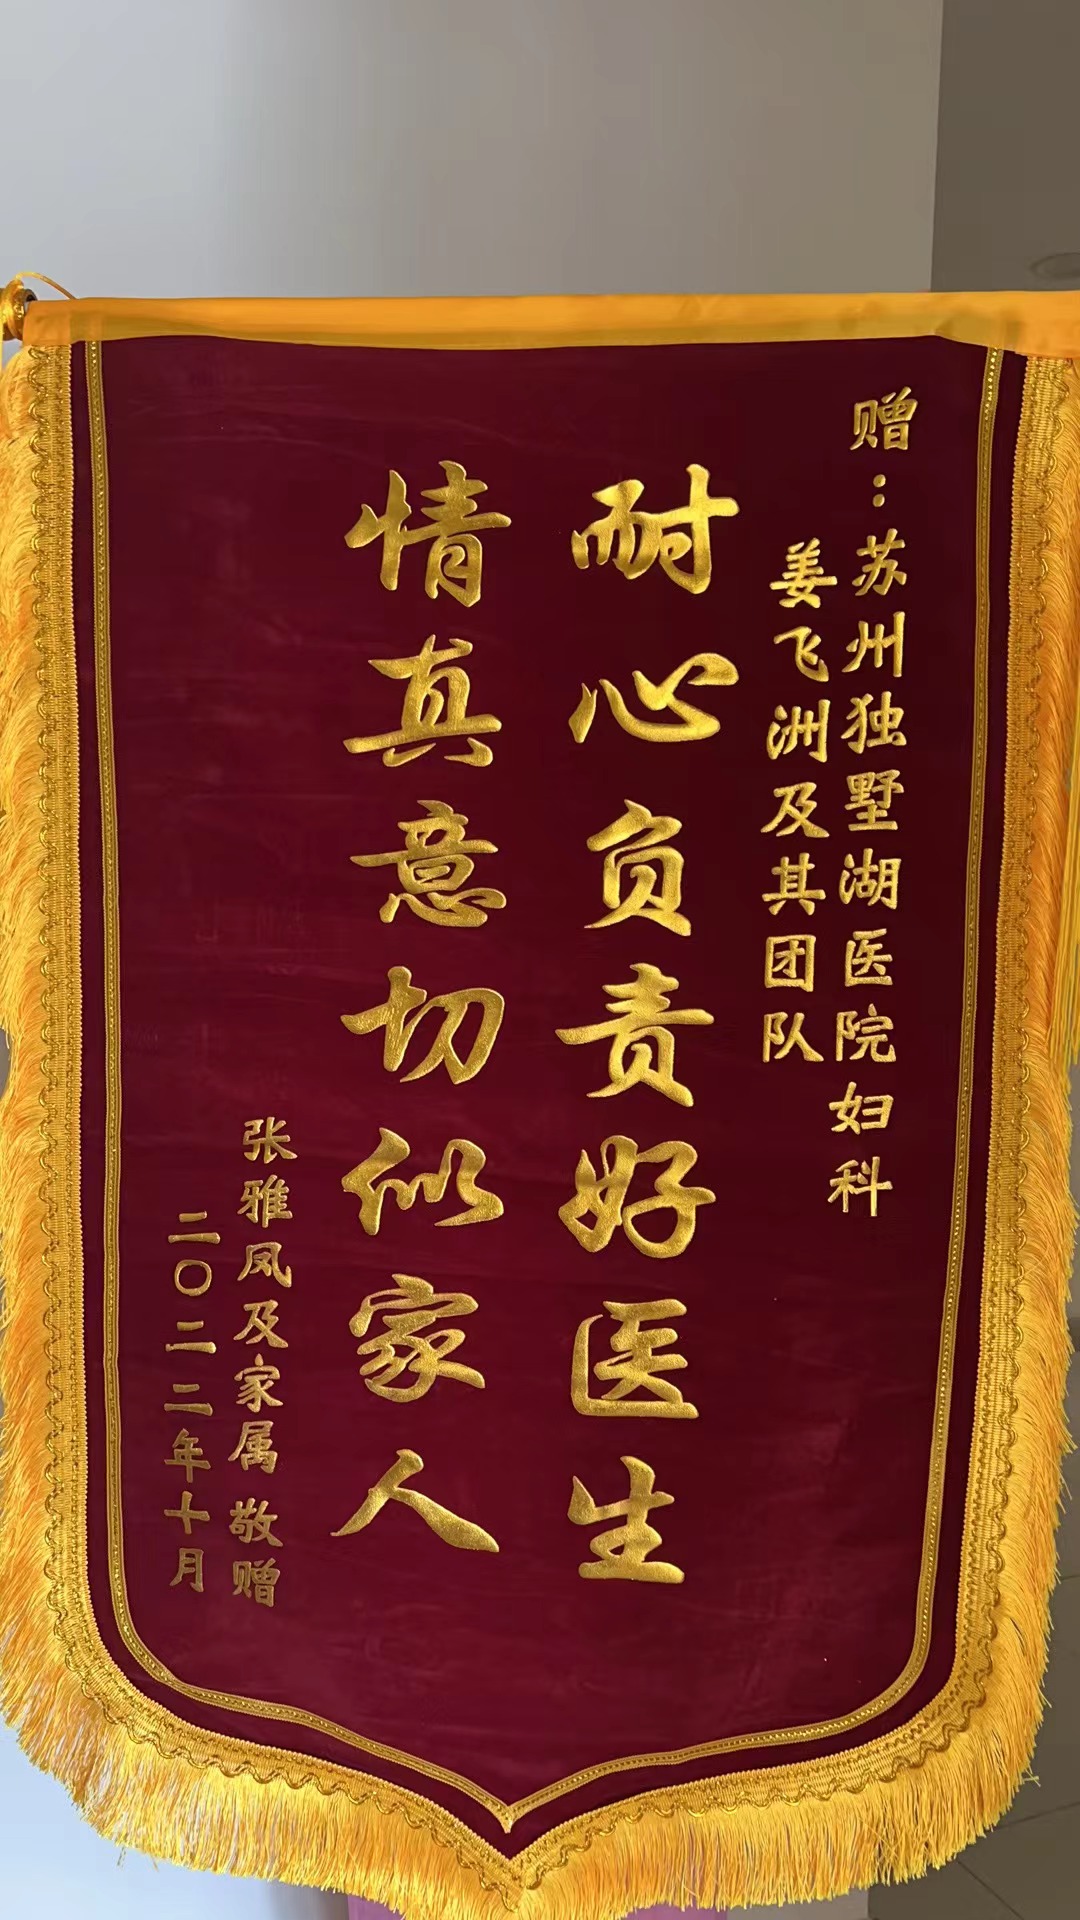 赠：苏州独墅湖医院妇科
姜飞洲及其团队
耐心负责好医生
情真意切似家人
张雅凤及家属 敬赠
二〇二二年十月